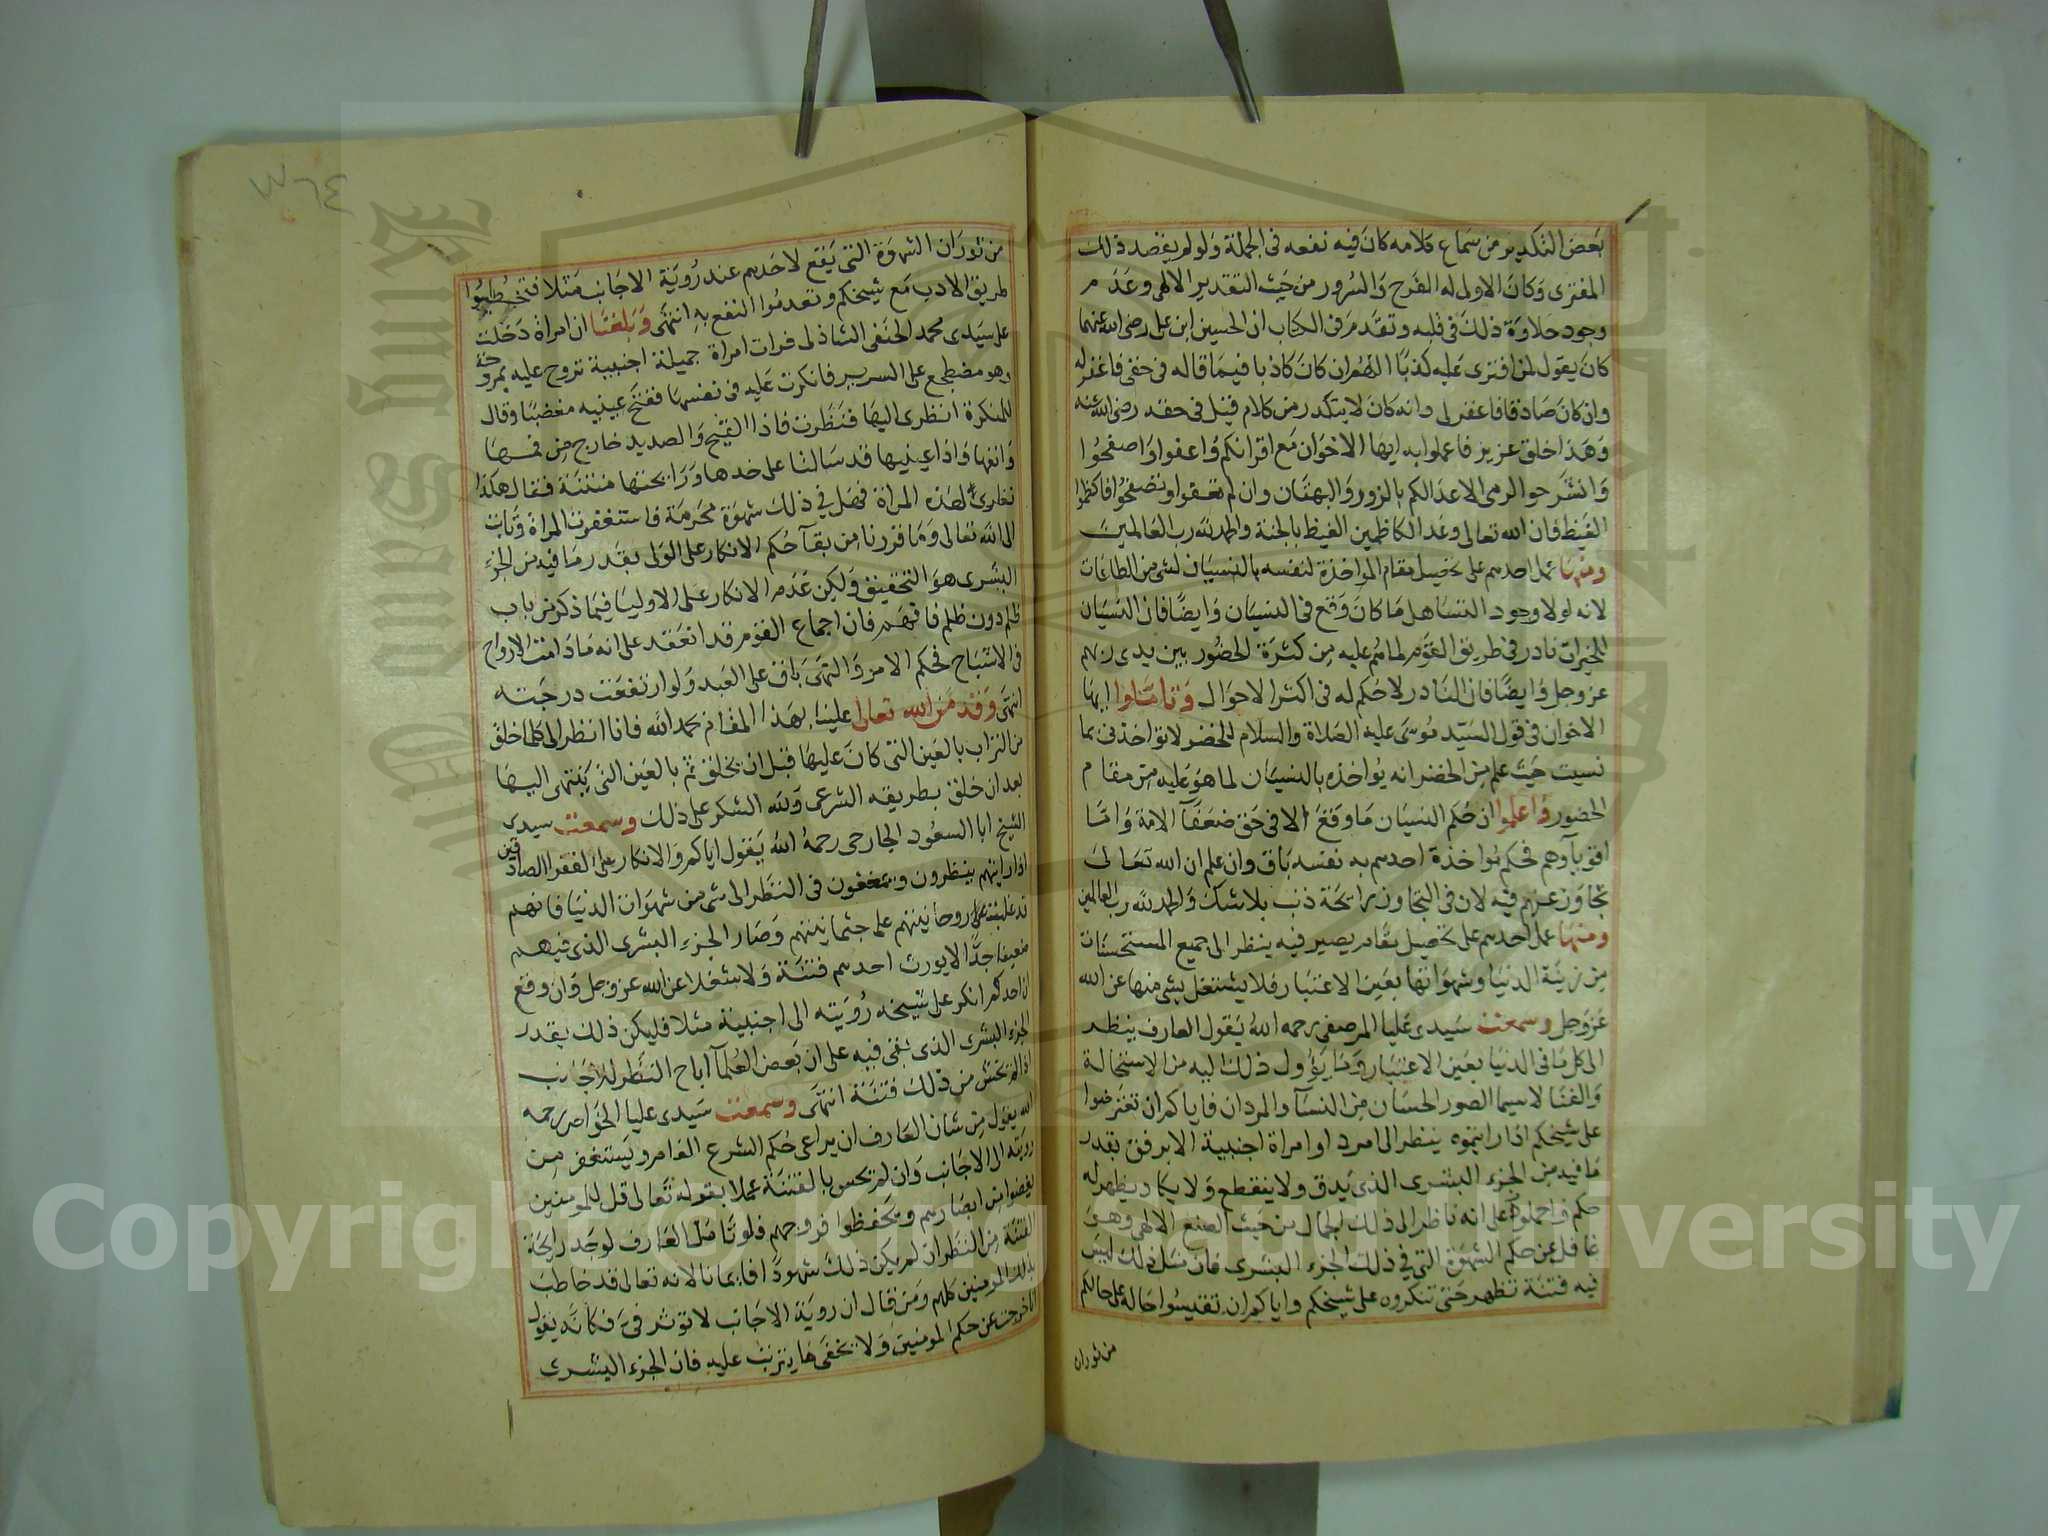 بعض التكدير من سماع كلامه كان فيه نفعه في الجملة ولو لم يقصد ذلك
المفتري وكان الاولى له الفرح والسرور من حيث التقدير الالهي وعدم
وجود حلاوة ذلك في قلبه وتقدم في الكتاب ان الحسين ابن علي رضي الله عنهما
كان يقول لمن افترى عليه كذبا اللهم ان كان كاذبا فيما قاله في حقي فاغفر له
وان كان صادقا فاغفر لي وانه كان لا يتكدر من كلام قيل في حقه رضي الله عنه
وهذا خلق عزيز فاعملوا به ايها الاخوان مع اقرانكم واعفوا واصفحوا
وانشرحوا لرمي الاعدا لكم بالزور والبهتان وان لم تعفوا وتصفحوا فاكظموا
الغيظ فان الله تعالى وعد الكاظمين الغيظ بالجنة والحمد لله رب العالمين
ومنها عمل احدهم على تحصيل مقام المواخذة لنفسه بالنسيان لشي من الطاعات
لانه لولا وجود التساهل ما كان وقع في النسيان وايضا فان النسيان
للخيرات نادر في طريق القوم لما هم عليه من كثرة الحضور بين يدي ربهم
عز وجل وايضا فان النادر لا حكم له في اكثر الاحوال وتاملوا ايها
الاخوان في قول السيد موسى عليه الصلاة والسلام للخضر لا تواخذني بما
نسيت حيث علم من الخضر انه يواخذه بالنسيان لما هو عليه من مقام
الحضور واعلموا ان حكم النسيان ما وقع الا في حق ضعفآ الامة واما
اقويآوهم فحكم مواخذة احدهم به نفسه باق وان علم ان الله تعالى
تجاوز عنهم فيه لان في التجاوز رايحة ذنب بلا شك والحمد لله رب العالمين
ومنها عمل احدهم على تحصيل مقام يصير فيه ينظر الى جميع المستحسنات
من زينة الدنيا وشهواتها بعين الاعتبار فلا يشتغل بشي منها عن الله
عز وجل وسمعت سيدي عليا المرصفي رحمه الله يقول العارف ينظر
الى كل ما في الدنيا بعين الاعتبار وما يؤول ذلك اليه من الاستحالة
والفنا لاسيما الصور الحسان من النسآ والمردان فاياكم ان تعترضوا
على شيخكم اذا رايتموه ينظر الى امرد او امراة اجنبية الا برفق بقدر
ما فيه من الجزء البشري الذي يدق ولا ينقطع ولا يكاد يظهر له
حكم فاحملوه على انه ناظر الى ذلك الجمال من حيث الصنع الالهي وهو
غافل عن حكم الشهوة التي في ذلك الجزء البشري فان مثل ذلك ليس
فيه فتنة تظهر حتى تنكروه على شيخكم واياكم ان تقيسوا حاله على حالكم
من ثوران
٣٦٤
من ثوران الشهوة التي يقع لاحدهم عند روية الاجانب مثلا فتخطئوا
طريق الادب مع شيخكم وتعدموا النفع به انتهى وبلغنا ان امراة دخلت
على سيدي محمد الحنفي الشاذلي فرات امراة جميلة اجنبية تروح عليه بمروحة
وهو مضطجع على السرير فانكرت عليه في نفسها ففتح عينيه مغضبا وقال
للمنكرة انظري اليها فنظرت فاذا القيح والصديد خارج من فمها
وانفها واذا عينيها قد سالتا على خدها ورايحتها منتنة فقال هكذا
نظري لهذه المراة فهل في ذلك شهوة محرمة فاستغفرت المراة وتابت
الى الله تعالى وما قررنا من بقآ حكم الانكار على الولي بقدر ما فيه من الجزء
البشري هو التحقيق ولكن عدم الانكار على الاوليا فيما ذكر من باب
ظلم دون ظلم فافهم فان اجماع القوم قد انعقد على انه ما دامت الارواح
في الاشباح فحكم الامر والنهي باق على العبد ولو ارتفعت درجته
انتهى وقد من الله تعالى علينا بهذا المقام بحمد الله فانا انظر الى كل ما خلق
من التراب بالعين التي كان عليها قبل ان يخلق ثم بالعين التي ينتهى اليها
بعد ان خلق بطريقه الشرعي ولله الشكر على ذلك وسمعت سيدي
الشيخ ابا السعود الجارحي رحمه الله يقول اياكم والانكار على الفقرا الصادقين
اذا رايتهم ينظرون ويمعنون في النظر الى شي من شهوات الدنيا فانهم
قد غلبت روحانيتهم على جثمانيتهم وصار الجزء البشري الذي فيهم
ضعيفا جدا لا يورث احدهم فتنة ولا شغلا عن الله عز وجل وان وقع
ان احدكم انكر على شيخه رويته الى اجنبية مثلا فليكن ذلك بقدر
الجزء البشري الذي بقى فيه على ان بعض العلمآ اباح النظر للاجانب
اذا لم يخش من ذلك فتنة انتهى وسمعت سيدي عليا الخواص رحمه
الله يقول من شان العارف ان يراعي حكم الشرع العام ويستغفر من
رويته الى الاجانب وان لم يحس بالفتنة عملا بقوله تعالى قل للمومنين
يغضوا من ابصارهم ويحفظوا فروجهم فلو تامل العارف لوجد رايحة
الفتنة من النظر ان لم يكن ذلك شهودا فايمانا لانه تعالى قد خاطب
بذلك المومنين كلهم ومن قال ان روية الاجانب لا توثر في فكانه يقول
انا خرجت عن حكم المومنين ولا يخفى ما يترتب عليه فان الجزء البشري
Copyright © King Saud University